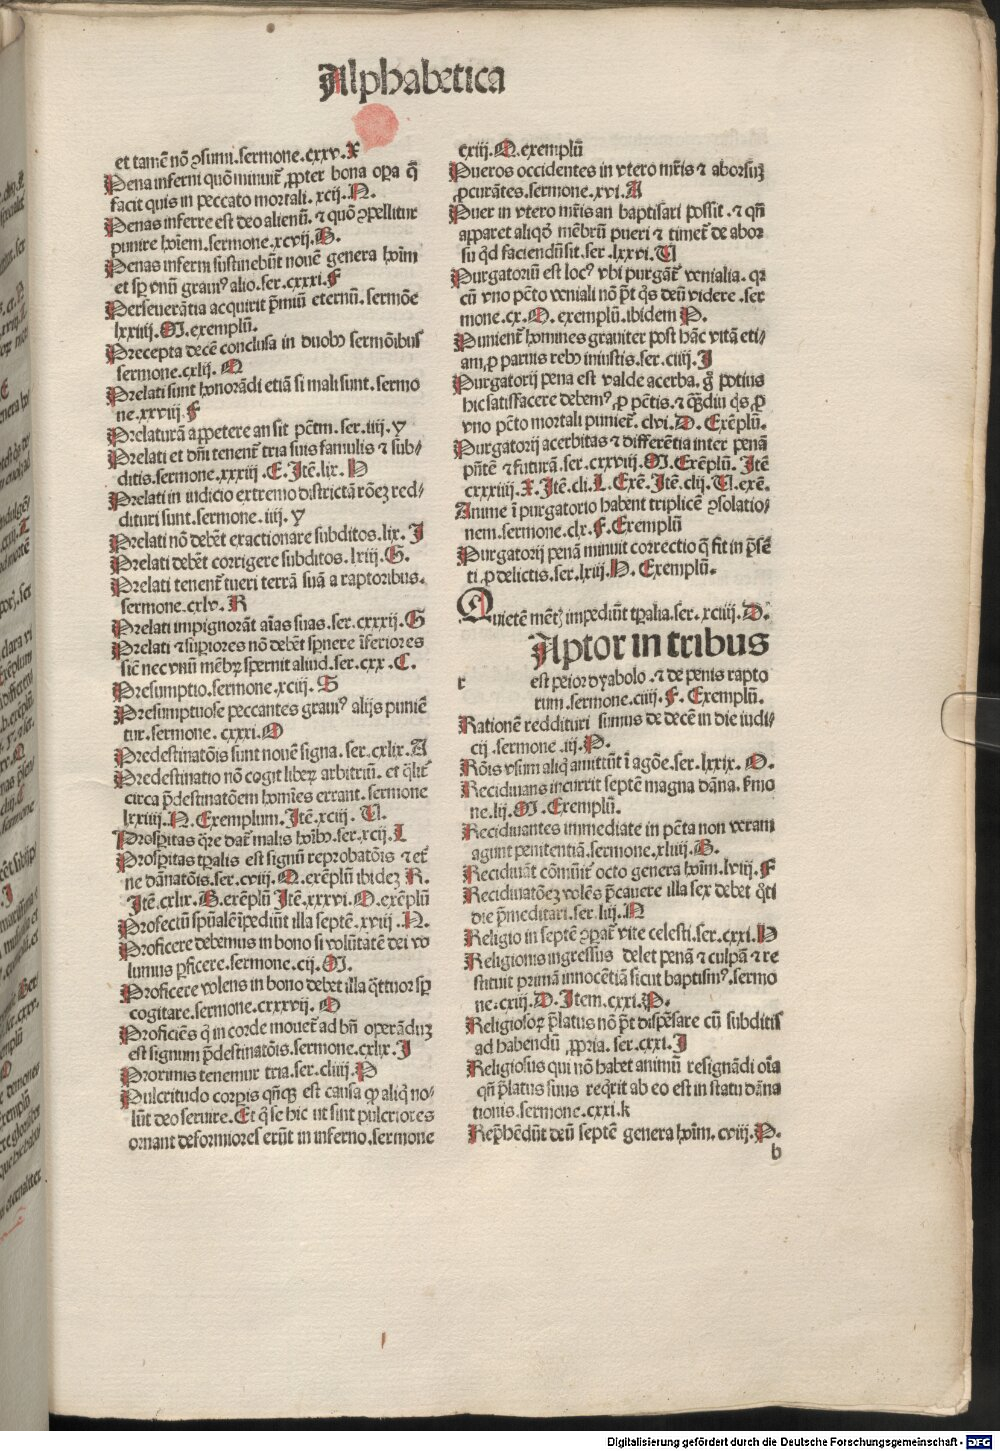 Alphabetica
et tamē nō ꝯsumi.sermone.cxxv.X
Pena inferni quō minuit᷑ ꝓpter bona oꝑa q̄
facit quis in peccato mortali.xcij.N.
Penas inferre est deo alienū.⁊ quō ꝯpellitur
punire hoīem.sermone.xcvij.B.
Penas inferni sustinebūt nouē genera hoīm
et sꝑ vnū grauiꝰ alio.ser.cxxxi.F
Perseuerātia acquirit p̄miū eternū.sermōe
lxxiiij.M.exemplū.
Precepta decē conclusa in duobꝰ sermōibus
sermone.cxlij.Q
Prelati sunt honorādi etiā si mali sunt.sermo
ne.xxviij.F
Prelaturā appetere an sit pc̄tm.ser.iiij.Y
Prelati et dn̄i tenent᷑ tria suis famulis ⁊ sub/
ditis.sermone.xxxiij.E.Itē.lix.H
Prelati in iudicio extremo districtā rōeꝫ red/
dituri sunt.sermone.iiij.Y
Prelati nō debēt exactionare subditos.lix.I
Prelati debēt corrigere subditos.lxiij.G.
Prelati tenent᷑ tueri terrā suā a raptoribus.
sermone.cxlv.R
Prelati impignorāt aīas suas.ser.cxxxij.G
Prelati ⁊ suꝑiores nō debēt sꝑnere īferiores
sic̄ nec vnū mēbꝝ spernit aliud.ser.cxx.C.
Presumptio.sermone.xciij.S
Presumptuose peccantes grauiꝰ alijs puniē
tur.sermone.cxxxi.O
Predestinatōis sunt nouē signa.ser.cxlix.A
Predestinatio nō cogit libeꝝ arbitriū.et q̄lit᷑
circa p̄destinatōem homīes errant.sermone
lxxiiij.N.Exemplum.Itē.xciij.T.
Prosꝑitas q̄re dat᷑ malis hoībꝰ.ser.xcij.L
Prosꝑitas tꝑalis est signū reprobatōis ⁊ et᷑
ne dānatōis.ser.cviij.Q.exēplū ibideꝫ R.
Itē.cxlix.B.exēplū Itē.xxxvi.O.exēplū
Profectū spūalē īpediūt illa septē.xviij.N.
Proficere debemus in bono si volūtatē dei vo
lumus ꝑficere.sermone.cij.M.
Proficere volens in bono debet illa q̄ttuor sꝑ
cogitare.sermone.cxxxvij.O
Proficiēs q̇ in corde mouet᷑ ad bn̄ operāduꝫ
est signum p̄destinatōis.sermone.cxlix.I
Proximis tenemur tria.ser.cliiij.P
Pulcritudo corꝑis qn̄qꝫ est causa ꝙ aliq̇ no/
lūt deo seruire.Et q̄ se hic ut sint pulcriores
ornant deformiores erūt in inferno.sermone
cxiij.Q.exemplū
Pueros occidentes in vtero mr̄is ⁊ aborsuꝫ
ꝓcurātes.sermone.xvi.A
Puer in vtero mr̄is an baptisari possit.⁊ qn̄
apparet aliqd̄ mēbrū pueri ⁊ timet᷑ de abor
su qd̄ faciendū sit.ser.lxxvi.T
Purgatoriū est locꝰ vbi purgāt᷑ venialia.qꝛ
cū vno pc̄to veniali nō pōt q̇s deū videre.ser
mone.cx.O.exemplū.ibidem P.
Punient᷑ homines grauiter post hāc vitā eti/
am ꝓ paruis rebꝰ iniustis.ser.ciiij.I
Purgatorij pena est valde acerba.gͦ potius
hic satisfacere debemꝰ ꝓ pc̄tis.⁊ qꝫdiu q̇s ꝓ
vno pc̄to mortali puniet᷑.clvi.D.Exēplū.
Purgatorij acerbitas ⁊ differētia inter penā
pn̄tē ⁊ futurā.ser.cxxviij.M.Exēplū.Itē
cxxxiiij.X.Itē.cli.L.Exē.Itē.clij.T.exē.
Anime ī purgatorio habent triplicē ꝯsolatio/
nem.sermone.clx.F.Exemplū
Purgatorij penā minuit correctio q̄ fit in p̄sē
ti ꝓ delictis.ser.lxiij.H.Exemplū.
Quietē mētꝭ impediūt tꝑalia.ser.xciiij.D.
Raptor in tribus
r
est peior dyabolo.⁊ de penis rapto
rum.sermone.ciiij.F.Exemplū.
Rationē reddituri sumus de decē in die iudi/
cij.sermone.iij.P.
Rōis vsum aliq̇ amittūt ī agōe.ser.lxxix.O.
Recidiuans incurrit septē magna dāna.sermo
ne.lij.M.Exemplū.
Recidiuantes immediate in pc̄ta non veram
agunt penitentiā.sermone.xliiij.B.
Recidiuāt cōmūit᷑ octo genera hoīm.lviij.F
Recidiuatōeꝫ volēs p̄cauere illa sex debet q̄ti
die p̄meditari.ser.liij.N
Religio in septē ꝯꝑat᷑ vite celesti.ser.cxxi.H
Religionis ingressus delet penā ⁊ culpā ⁊ re
stituit primā innocētiā sicut baptismꝰ.sermo
ne.cxiij.D.Item.cxxi.P.
Religiosoꝝ p̄latus nō pōt dispēsare cū subditis
ad habendū ꝓpria.ser.cxxi.I
Religiosus qui nō habet animū resignādi oīa
qn̄ p̄latus suus req̇rit ab eo est in statu dāna
tionis.sermone.cxxi.k
Rep̄hēdūt deū septē genera hoīm.cviij.P.
b
Digitalisierung gefördert durch die Deutsche Forschungsgemeinschaft - DFG